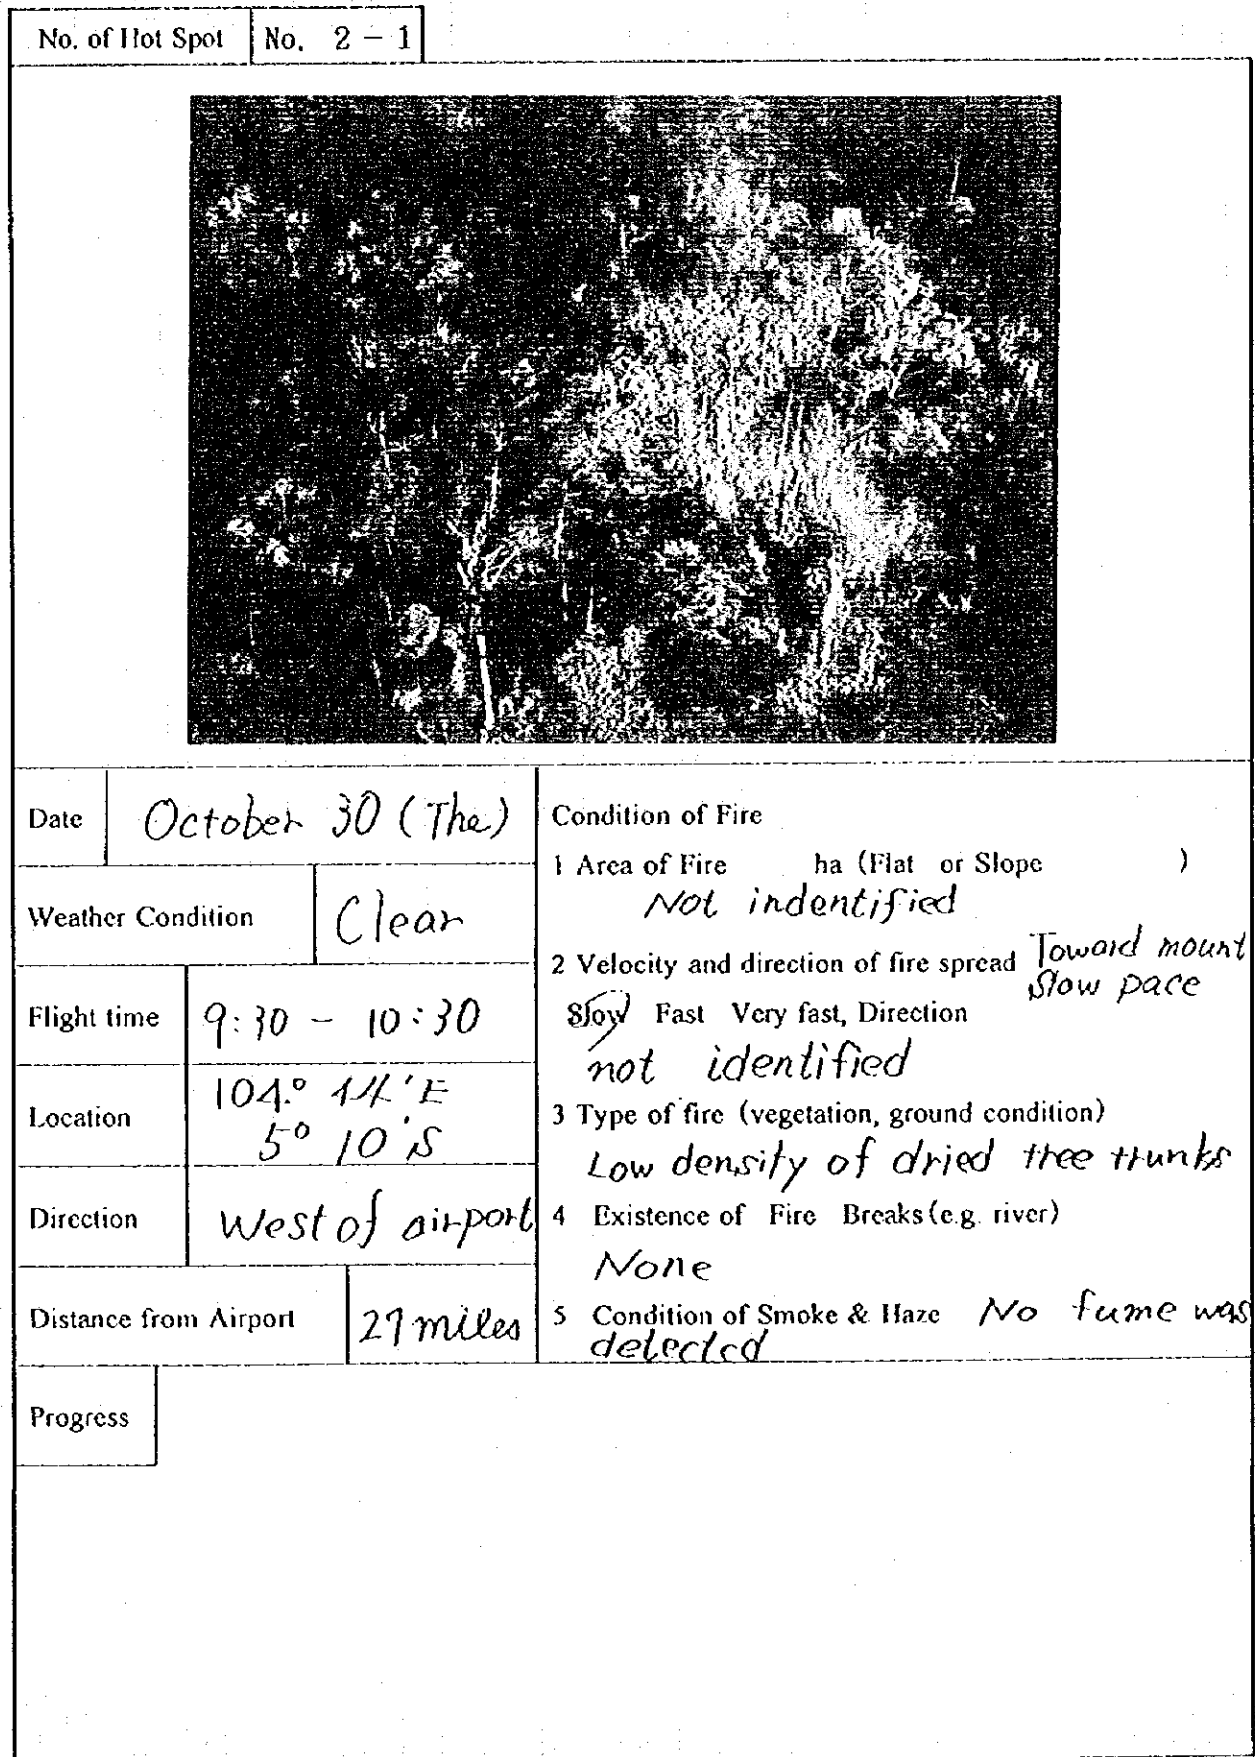 No. of Hot Spot No. 2 - 1
Date October 30 (The)
Weather Condition Clear
Flight time 9:30 - 10:30
Location 104°
5° 10'S
Direction West of airport
Distance from Airport miles
Condition of Fire
1 Area of Fire ha (Flat or Slope )
Not indentified
2 Velocity and direction of fire spread Toward mount
Slow pace
Slow Fast Very fast, Direction
not identified
3 Type of fire (vegetation, ground condition)
Low density of dried tree trunks
4 Existence of Fire Breaks (e.g. river)
None
5 Condition of Smoke & Haze No fume was
detected
Progress